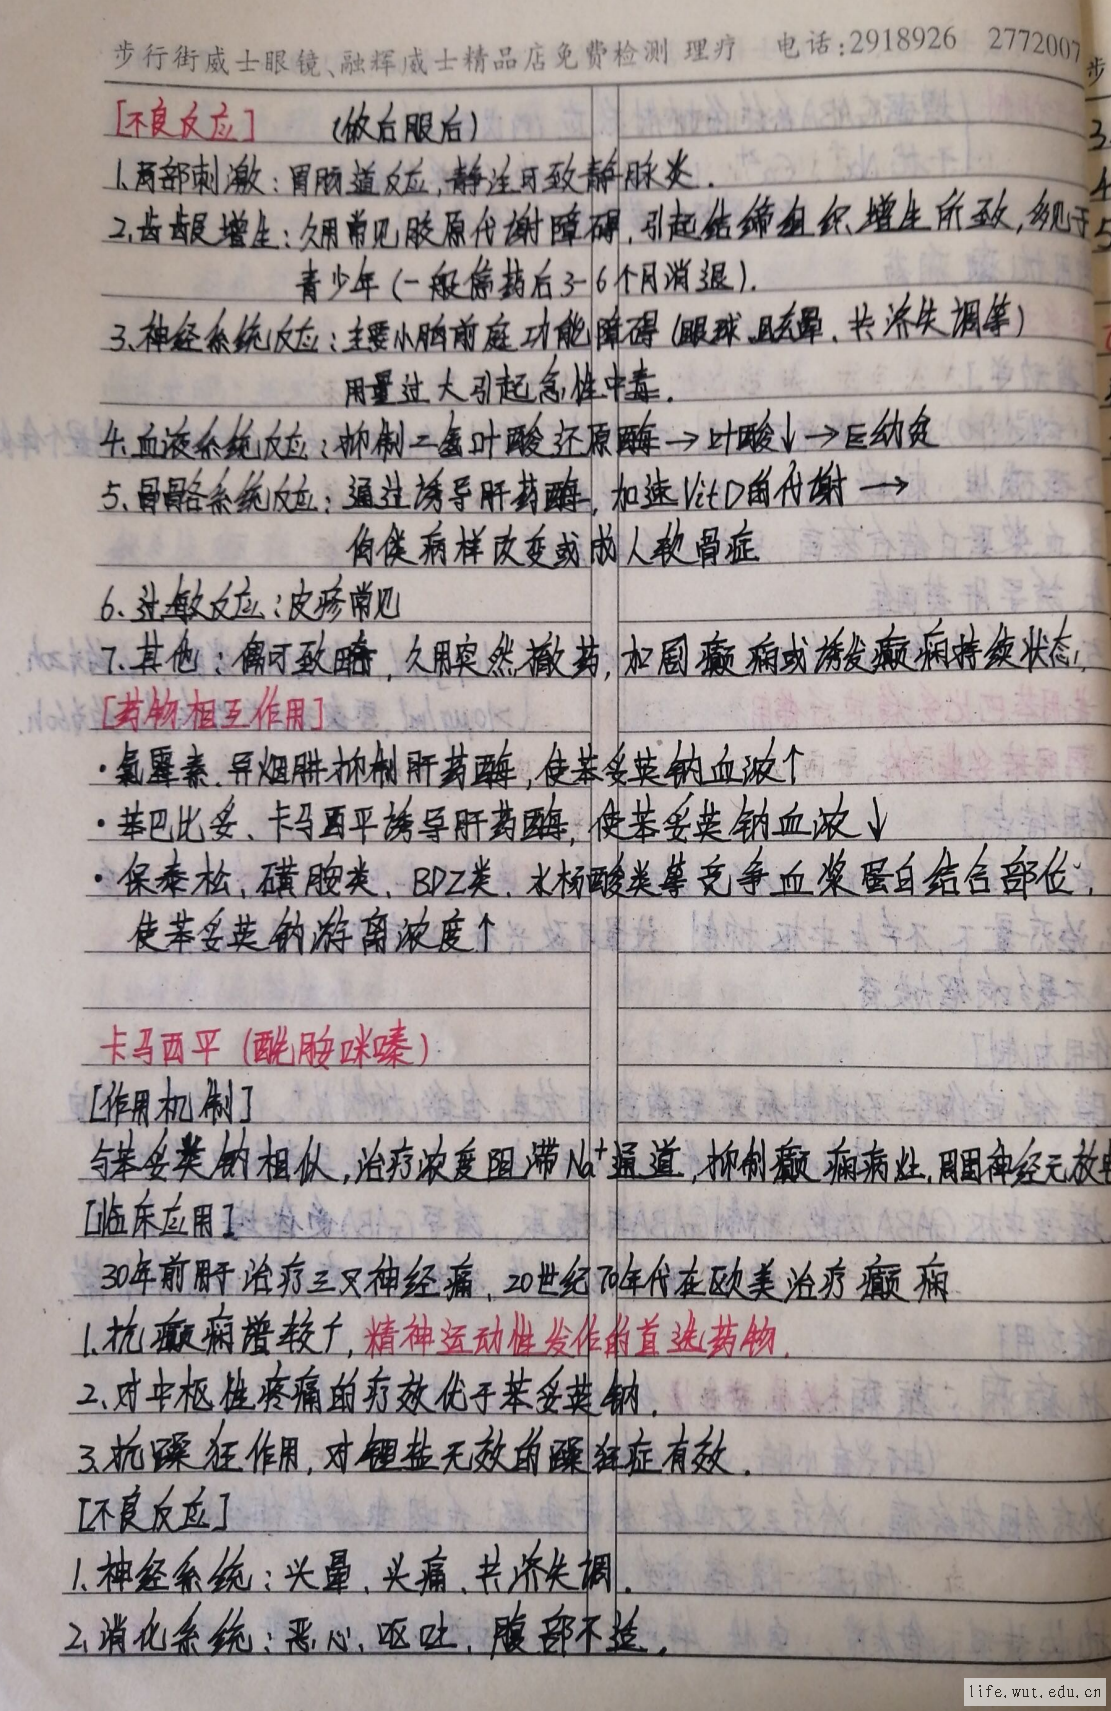 步行街威士眼镜、融辉威士精品店免费检测 理疗 电话:2918926 2772007
[不良反应] (饭后服后)
1.局部刺激:胃肠道反应,静注可致静脉炎.
2.齿龈增生:久用常见胶原代谢障碍,引起结缔组织增生所致,多见于
青少年(一般停药后3-6个月消退).
3.神经系统反应:主要小脑前庭功能障碍(眼球,眩晕、共济失调等)
用量过大引起急性中毒.
4.血液系统反应:抑制二氢叶酸还原酶→叶酸↓→巨幼贫
5.骨骼系统反应:通过诱导肝药酶,加速VitD的代谢→
佝偻病样改变或成人软骨症
6.过敏反应:皮疹常见
7.其他:偶可致畸,久用突然撤药,加剧癫痫或诱发癫痫持续状态.
[药物相互作用]
·氯霉素、异烟肼抑制肝药酶,使苯妥英钠血浓↑
·苯巴比妥、卡马西平诱导肝药酶,使苯妥英钠血浓↓
·保泰松、磺胺类、BDZ类、水杨酸类等竞争血浆蛋白结合部位,
使苯妥英钠游离浓度↑
卡马西平(酰胺咪嗪)
[作用机制]
与苯妥英钠相似,治疗浓度阻滞Na⁺通道,抑制癫痫病灶,周围神经元放电
[临床应用]
30年前用于治疗三叉神经痛、20世纪70年代在欧美治疗癫痫
1.抗癫痫谱较广,精神运动性发作的首选药物.
2.对中枢性疼痛的疗效优于苯妥英钠.
3.抗躁狂作用,对锂盐无效的躁狂症有效.
[不良反应]
1.神经系统:头晕、头痛、共济失调.
2.消化系统:恶心、呕吐、腹部不适.
life.wut.edu.cn